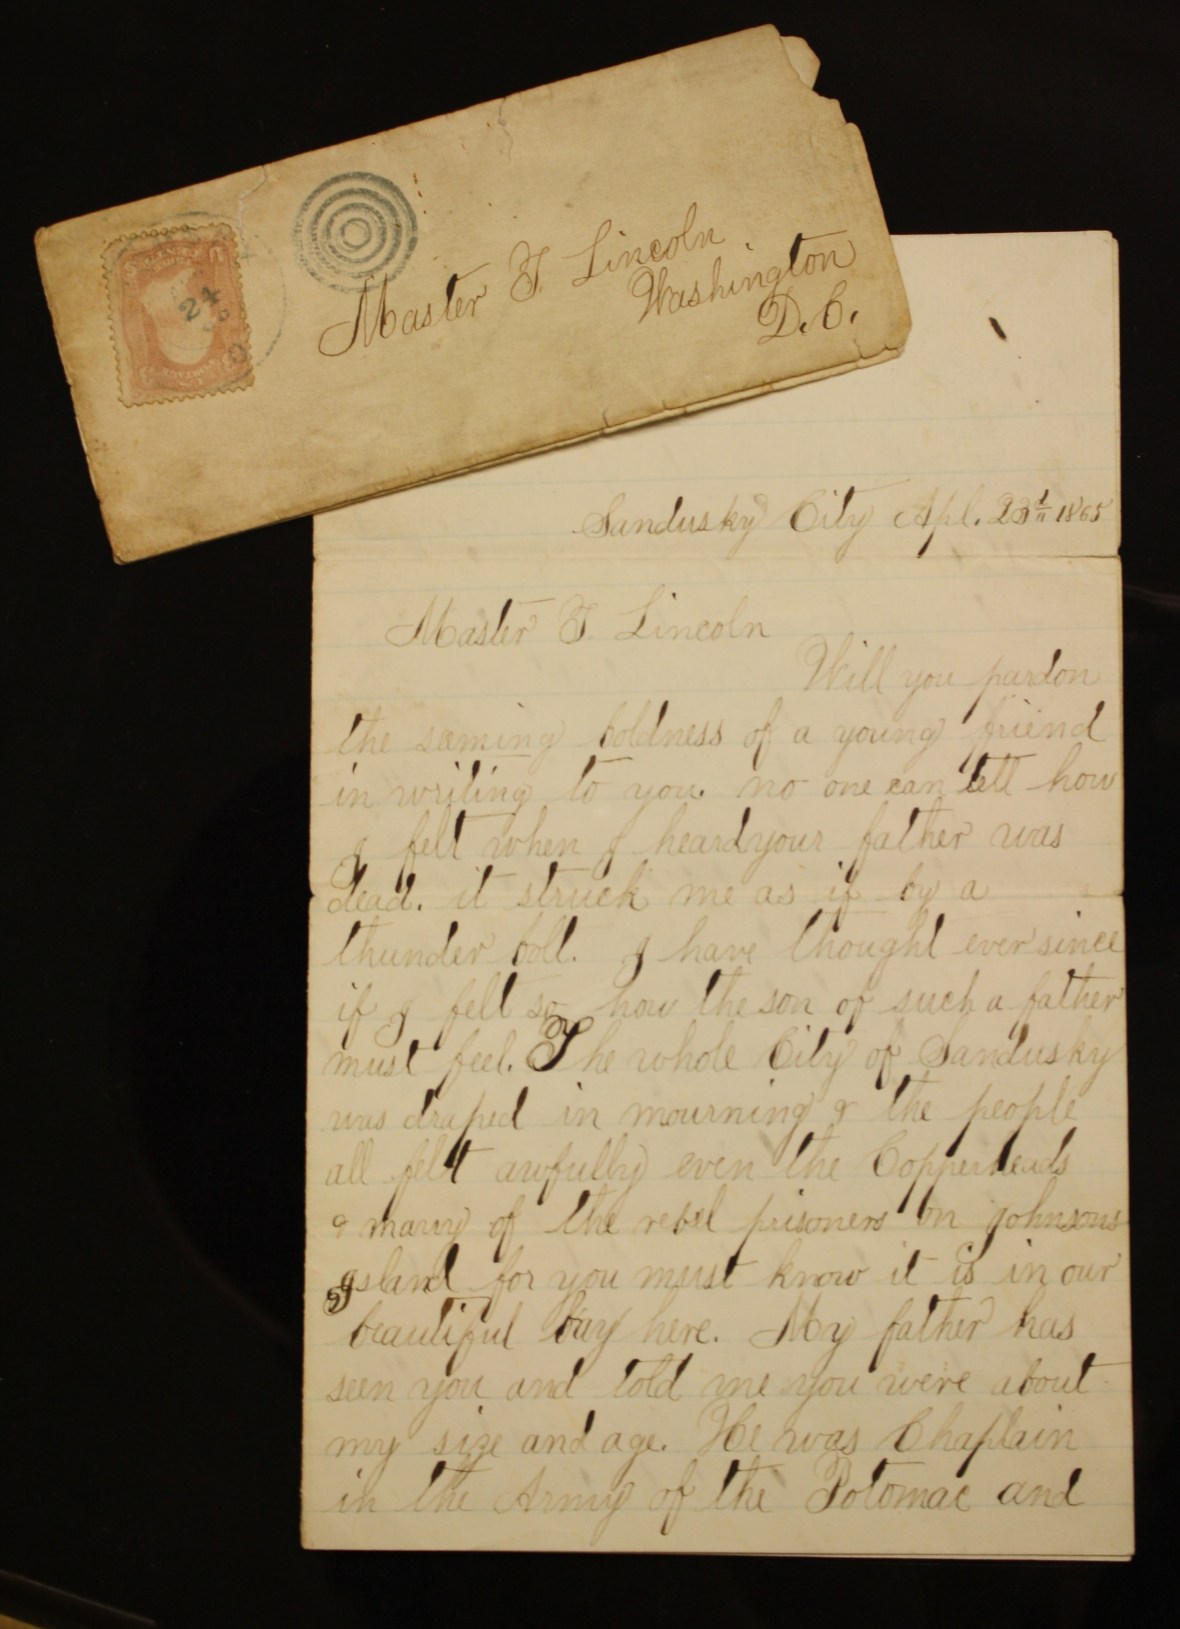 24
Master T. Lincoln
Washington
D.C.
Sandusky City Apl. 23th 1865
Master T. Lincoln
Will you pardon
the seeming boldness of a young friend
in writing to you. no one can tell how
I felt when I heard your father was
dead. it struck me as if by a
thunder bolt. I have thought ever since
if I felt so how the son of such a father
must feel. The whole City of Sandusky
was draped in mourning & the people
all felt awfully even the Copperheads
& many of the rebel prisoners on Johnsons
Island for you must know it is in our
beautiful bay here. My father has
seen you and told me you were about
my size and age. He was Chaplain
in the Army of the Potomac and